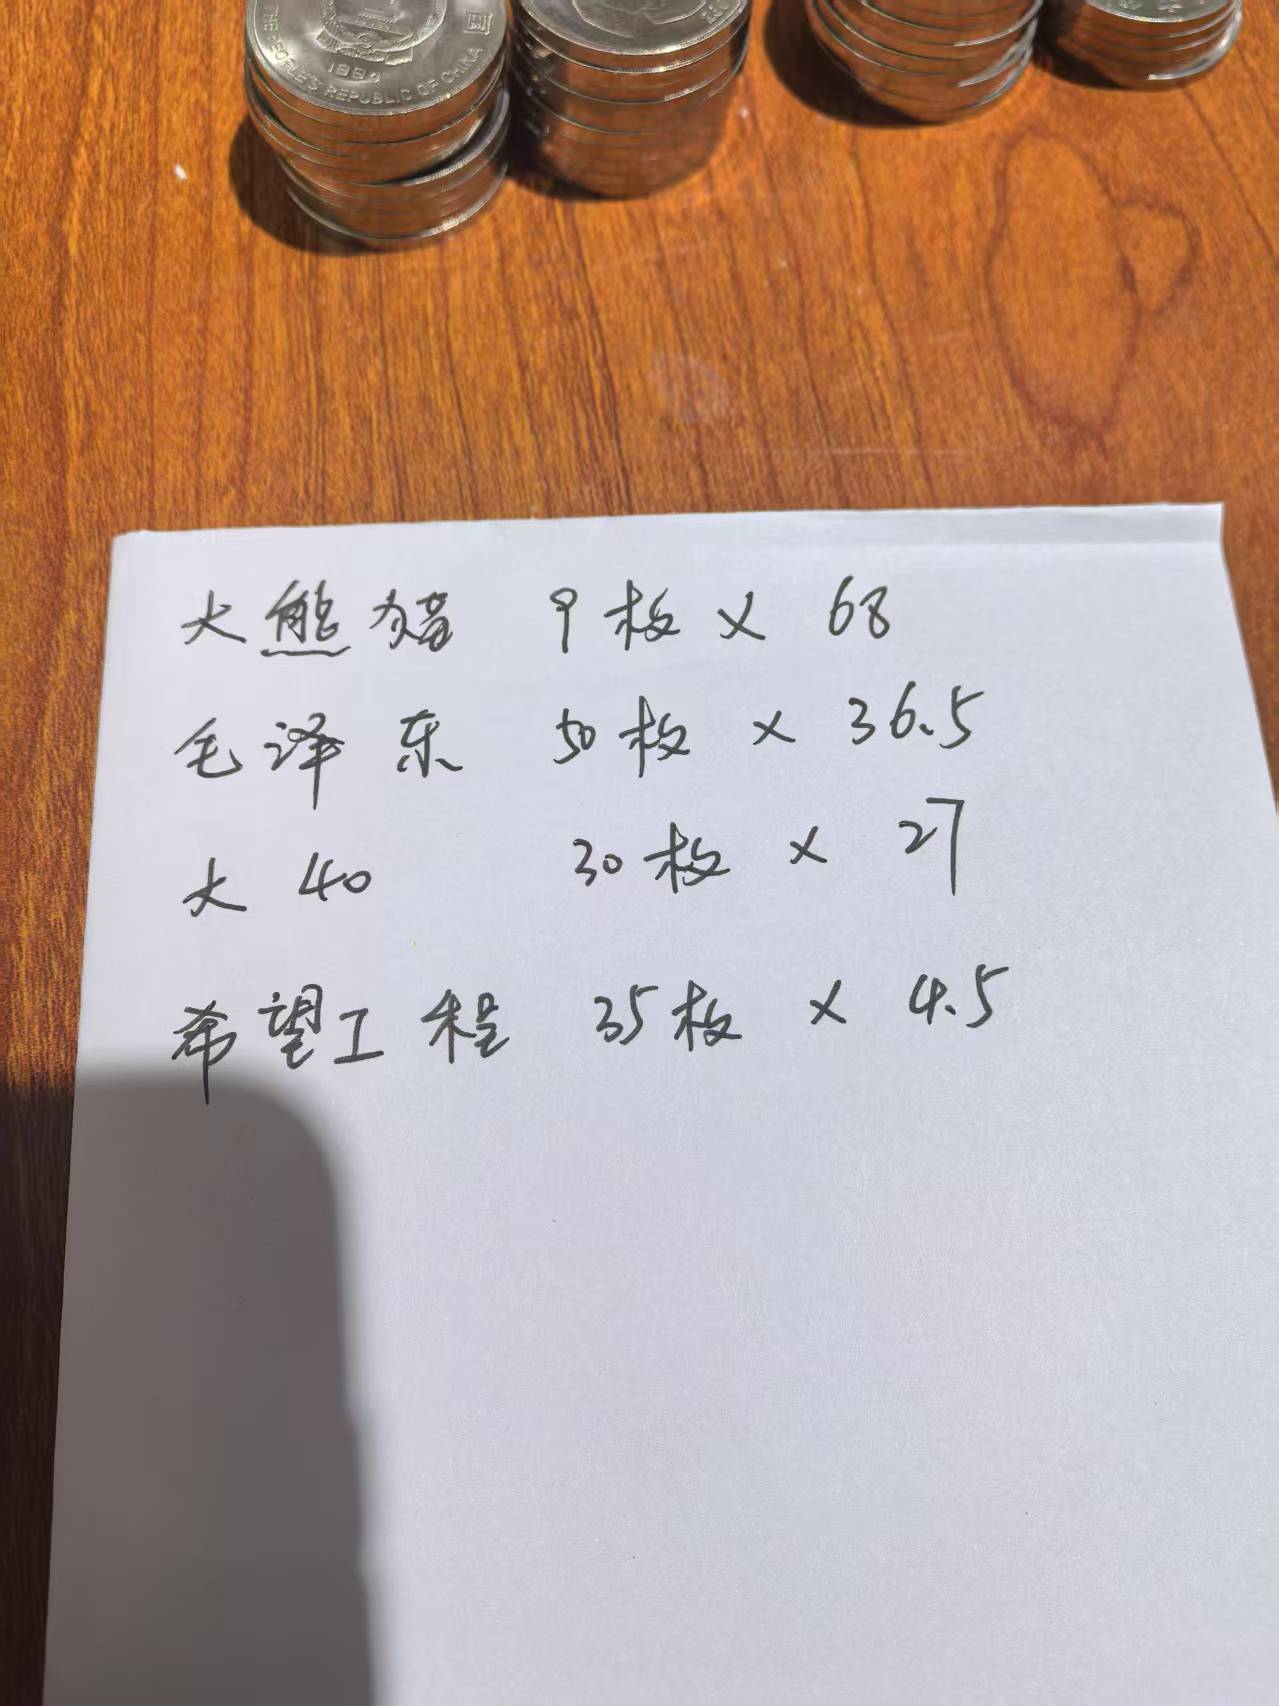 国
1984
THE PEOPLE'S REPUBLIC OF CHINA
大熊猫 9枚 × 68
毛泽东 50枚 × 36.5
大40 30枚 × 27
希望工程 35枚 × 4.5